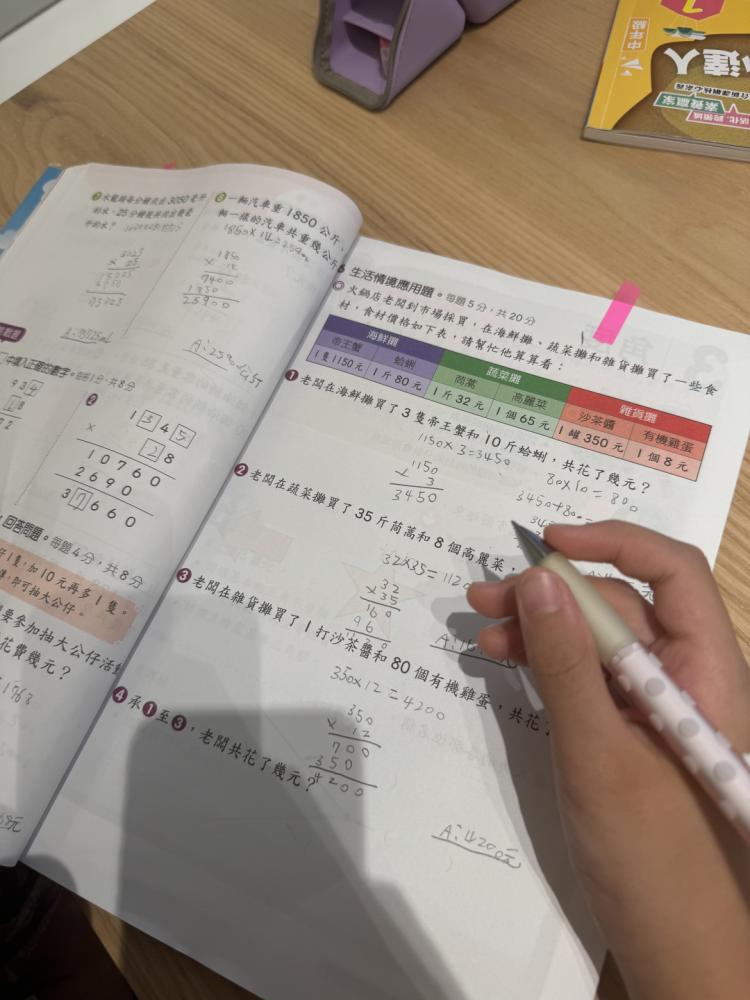 中年級
達人
素養贏家
活化.跨領域
水龍頭每分鐘流出3050毫升
的水,25分鐘後共流出幾毫
升的水?
A:
一輛汽車重1850公斤、
輛一樣的汽車共重幾公斤
1850×14=25900
1850
× 14
7400
1850
25900
A:25900公斤
中填入正確的數字。每格1分,共8分
1 3 4 5
× 2 8
1 0 7 6 0
2 6 9 0
3 7 6 6 0
回答問題。每題4分,共8分
1隻,加10元再多1隻。
即可抽大公仔。
要參加抽大公仔活動
花費幾元?
生活情境應用題。每題5分,共20分
火鍋店老闆到市場採買,在海鮮攤、蔬菜攤和雜貨攤買了一些食
材,食材價格如下表,請幫忙他算算看:
海鮮攤 蔬菜攤 雜貨攤
帝王蟹 蛤蜊 茼蒿 高麗菜 沙茶醬 有機雞蛋
1隻1150元 1斤80元 1斤32元 1個65元 1罐350元 1個8元
❶老闆在海鮮攤買了3隻帝王蟹和10斤蛤蜊,共花了幾元?
1150×3=3450
80×10=800
1150
× 3
3450
3450+800=
❷老闆在蔬菜攤買了35斤茼蒿和8個高麗菜,
32×35=1120
32
×35
160
96
1120
❸老闆在雜貨攤買了1打沙茶醬和80個有機雞蛋,共花了
350×12=4200
350
× 12
700
350
4200
A:4200元
❹承❶至❸,老闆共花了幾元?